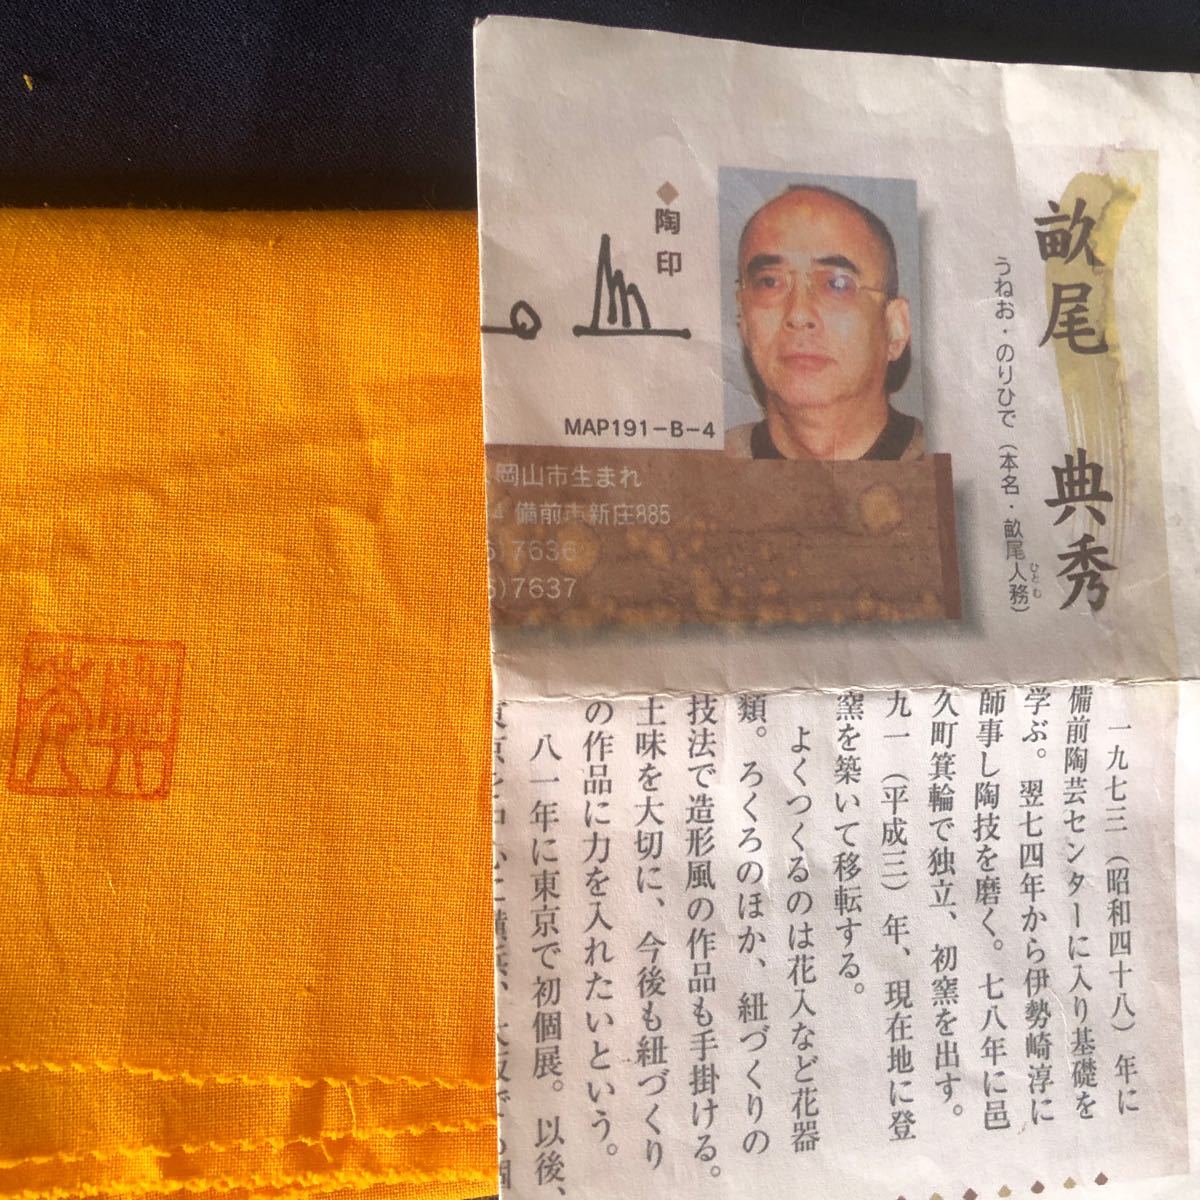 畝尾 典秀
うねお・のりひで（本名・畝尾人務）
ひとむ
◆陶印
MAP191-B-4
岡山市生まれ
4 備前市新庄885
)7636
)7637
一九七三（昭和四十八）年に
備前陶芸センターに入り基礎を
学ぶ。翌七四年から伊勢崎淳に
師事し陶技を磨く。七八年に邑
久町箕輪で独立、初窯を出す。
九一（平成三）年、現在地に登
窯を築いて移転する。
よくつくるのは花入など花器
類。ろくろのほか、紐づくりの
技法で造形風の作品も手掛ける。
土味を大切に、今後も紐づくり
の作品に力を入れたいという。
八一年に東京で初個展。以後、